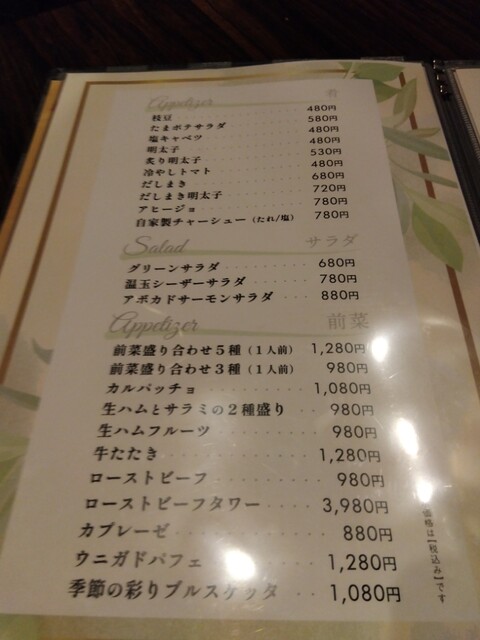 Appetizer 肴
枝豆 480円
たまポテサラダ 580円
塩キャベツ 480円
明太子 480円
炙り明太子 530円
冷やしトマト 480円
だしまき 680円
だしまき明太子 720円
アヒージョ 780円
自家製チャーシュー（たれ/塩） 780円
Salad サラダ
グリーンサラダ 680円
温玉シーザーサラダ 780円
アボカドサーモンサラダ 880円
Appetizer 前菜
前菜盛り合わせ５種（１人前） 1,280円
前菜盛り合わせ３種（１人前） 980円
カルパッチョ 1,080円
生ハムとサラミの２種盛り 980円
生ハムフルーツ 980円
牛たたき 1,280円
ローストビーフ 980円
ローストビーフタワー 3,980円
カプレーゼ 880円
ウニガドパフェ 1,280円
季節の彩りブルスケッタ 1,080円
価格は【税込み】です